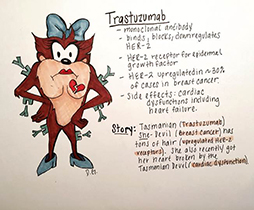 Trastuzumab
- monoclonal antibody
- binds, blocks, downregulates
HER-2
- HER-2 receptor for epidermal
growth factor
- HER-2 upregulated in ~30%
of cases in breast cancer.
- Side effects: cardiac
dysfunctions including
heart failure.
Story: Tasmanian (Trastuzumab)
She-Devil (Breast cancer) has
tons of hair (upregulated HER-2
receptors). She also recently got
her heart broken by the
Tasmanian Devil (cardiac dysfunction)